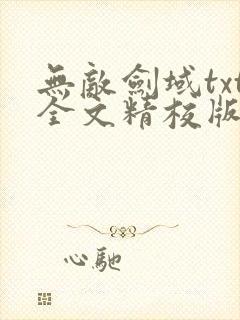 無敵劍域txt
全文精校版
心馳